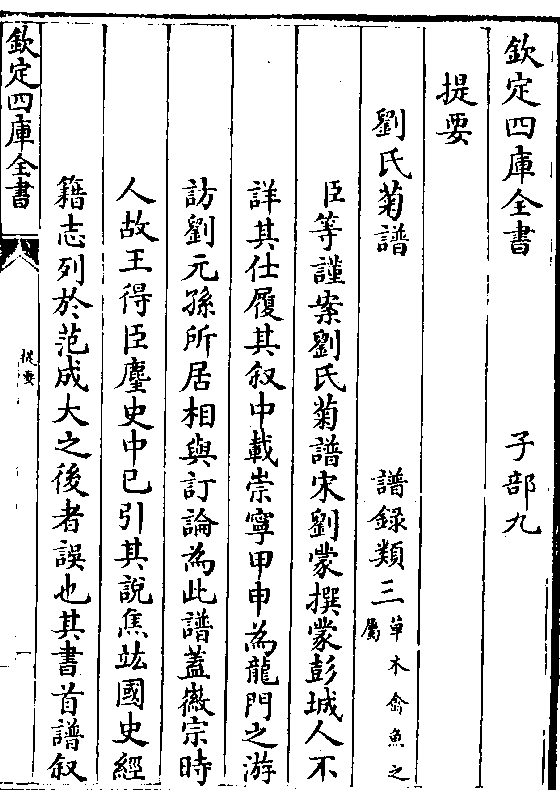 欽定四庫全書　子部九
提要
劉氏菊譜　譜録類三草木禽魚之屬
臣等謹案劉氏菊譜宋劉蒙撰蒙彭城人不
詳其仕履其叙中載崇寧甲申為龍門之游
訪劉元孫所居相與訂論為此譜蓋徽宗時
人故王得臣麈史中已引其說焦竑國史經
籍志列於范成大之後者誤也其書首譜叙
欽定四庫全書
提要
一